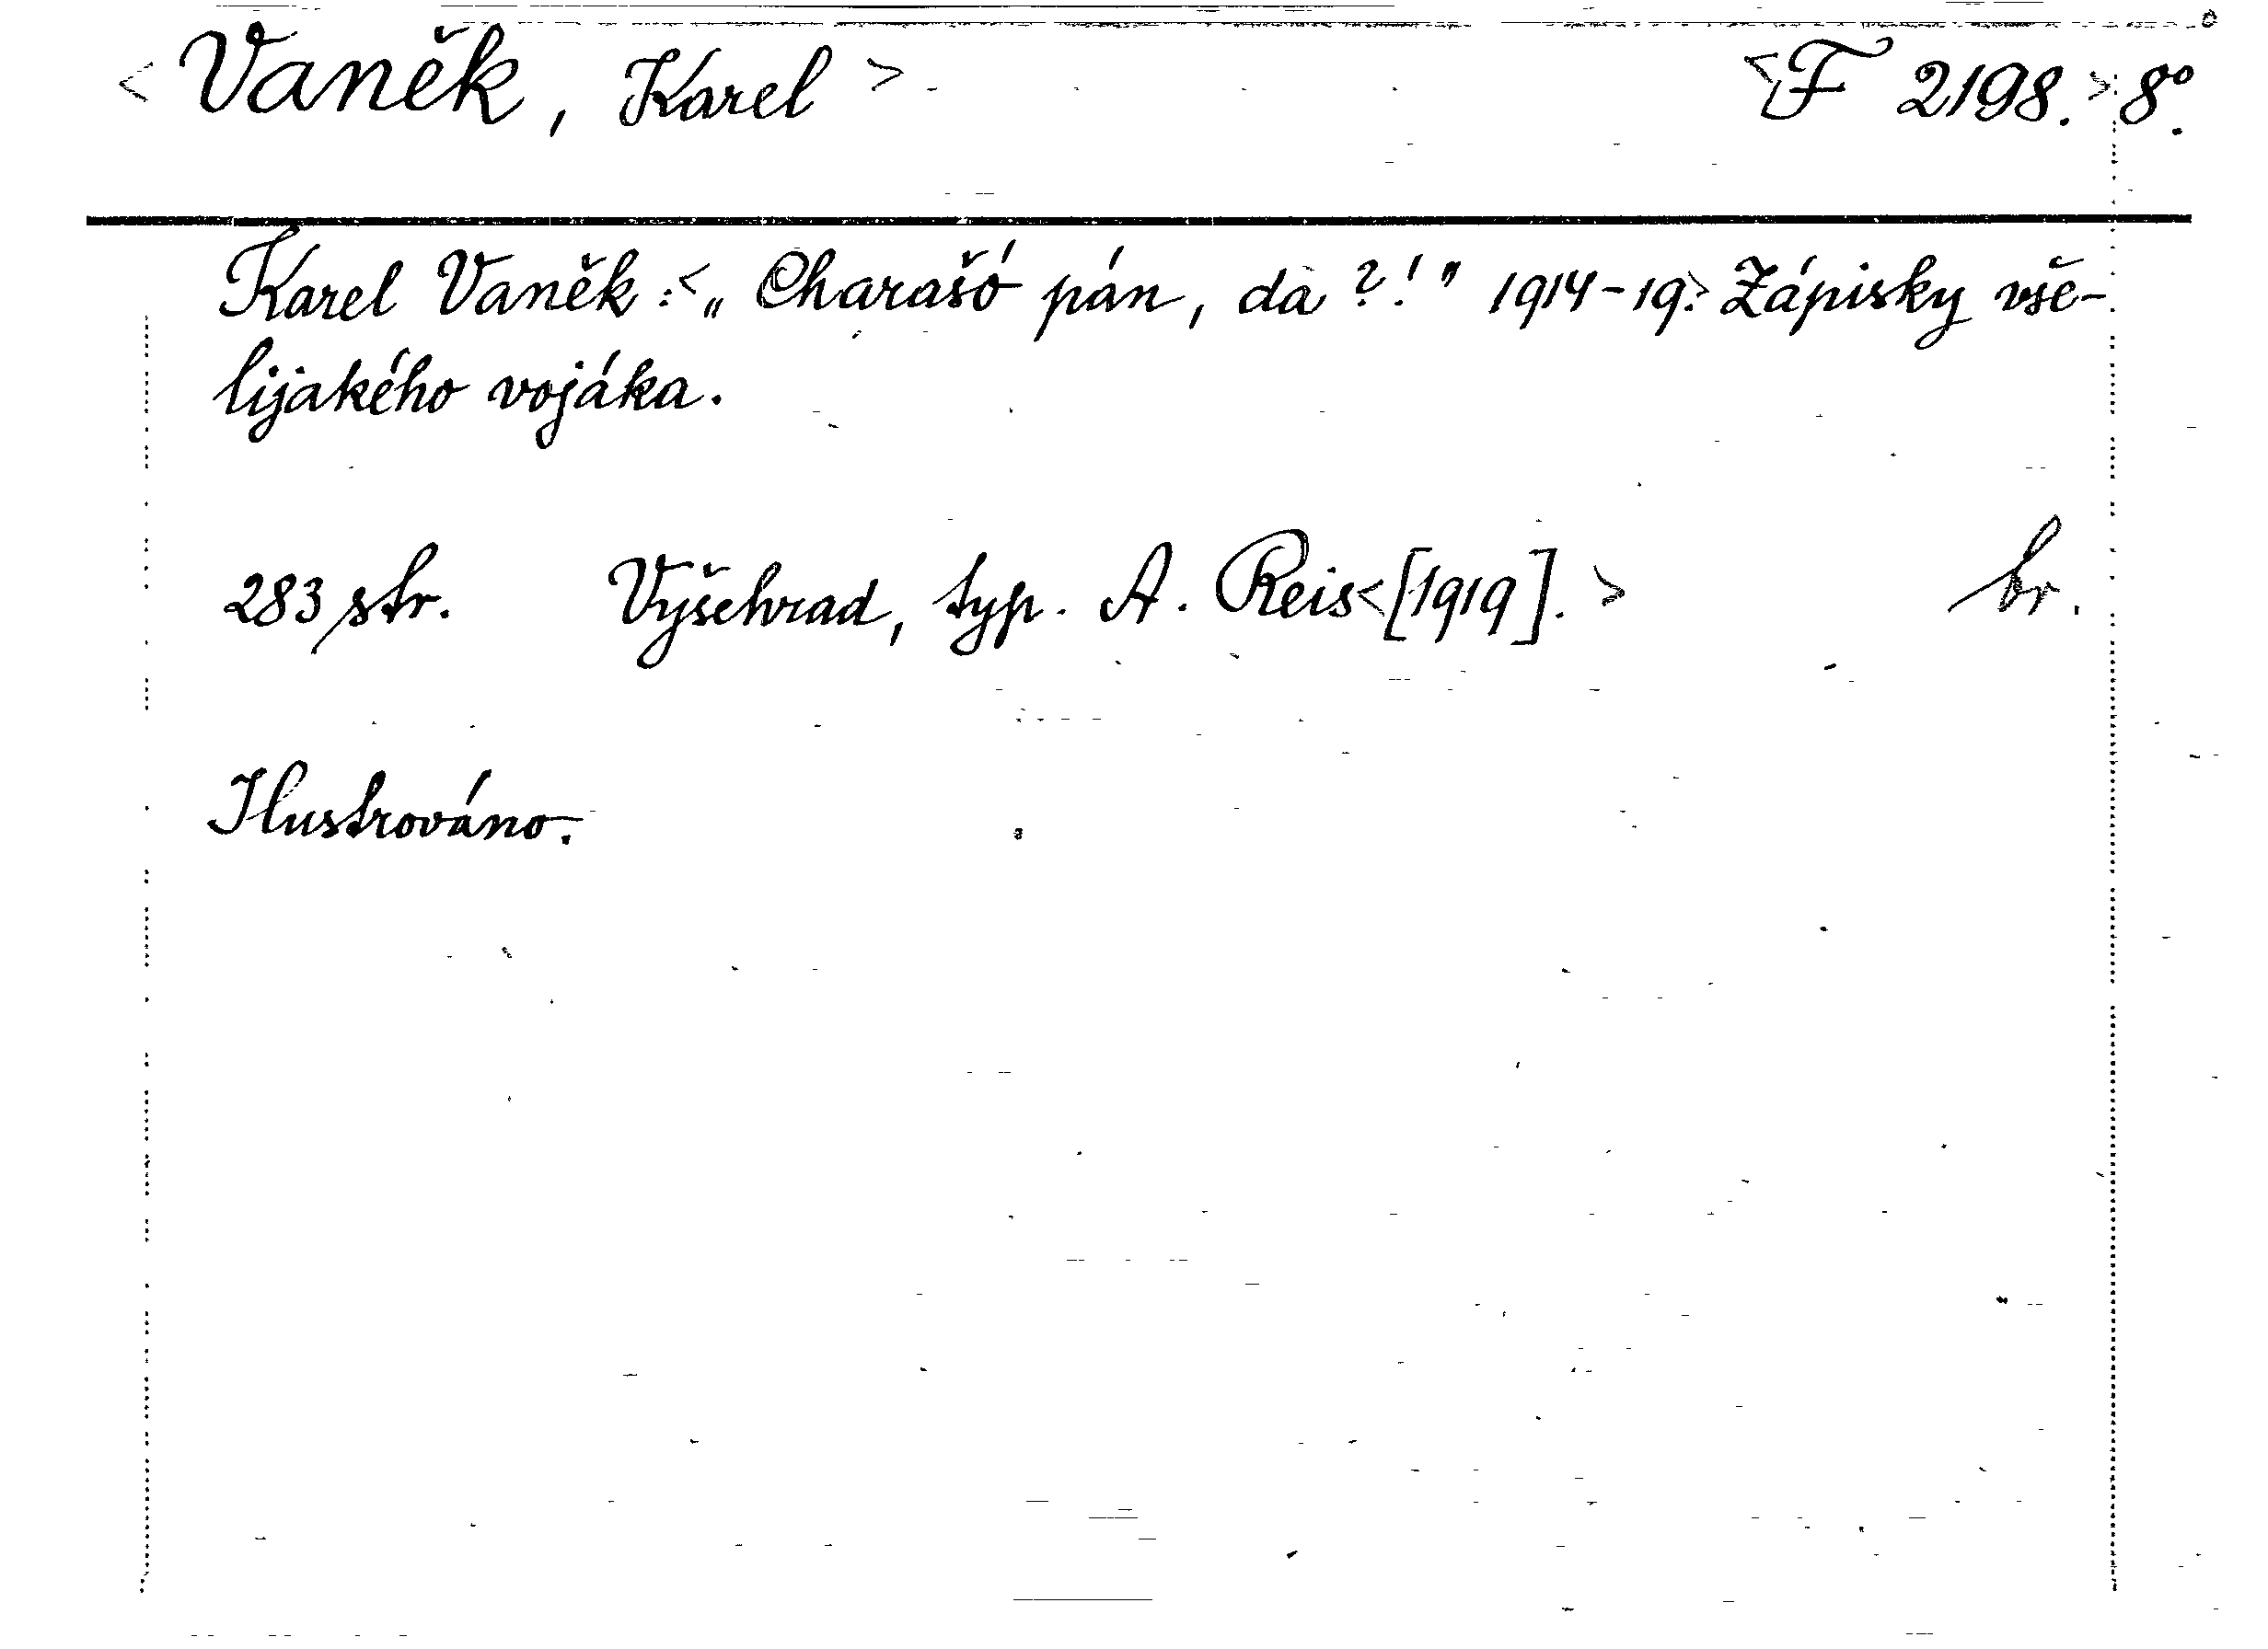 <Vaněk, Karel> <F 2198.> 8°.
Karel Vaněk: <„Charašó pán, da?!" 1914-19.> Zápisky vše-
lijakého vojáka.
283 str. Vyšehrad, typ. A. Reis <[1919].> br.
Ilustrováno.